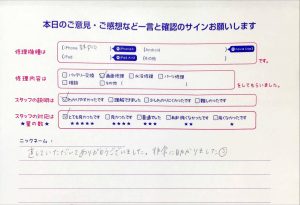 本日のご意見・ご感想など一言と確認のサインお願いします
修理機種は
iPhone
Android
iPad
その他
です。
修理内容は
バッテリー交換 画面修理 水没修理 パーツ修理
をしてもらいました。
スタッフの説明は
わかりやすかったです 理解できました 少しわかりにくかったです 難しかったです
スタッフの対応は
★星の数★
とても良かったです 良かったです 普通でした
★★★★★ ★★★★ ★★★ ★★ ★
ニックネーム：
直していただいてありがとうございました。非常に助かりました